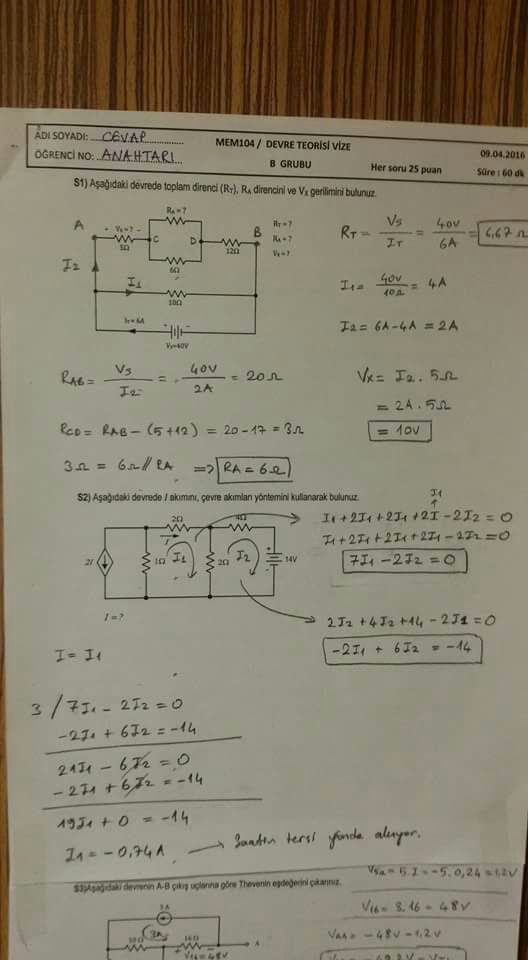 ADI SOYADI: CEVAP
ÖĞRENCİ NO: ANAHTARI
MEM104 / DEVRE TEORİSİ VİZE
B GRUBU
Her soru 25 puan
09.04.2016
Süre : 60 dk
S1) Aşağıdaki devrede toplam direnci (RT), RA direncini ve VX gerilimini bulunuz.
RA = ?
A
+ VX = ? -
5Ω
C
D
6Ω
12Ω
B
RT = ?
RA = ?
VX = ?
I2
I1
10Ω
IT = 6A
+ -
VS=40V
RT = VS / IT = 40V / 6A = 6,67 Ω
I1 = 40V / 10Ω = 4A
I2 = 6A - 4A = 2A
RAB = VS / I2 = 40V / 2A = 20Ω
VX = I2 . 5Ω
= 2A . 5Ω
= 10V
RCD = RAB - (5+12) = 20 - 17 = 3Ω
3Ω = 6Ω // RA => RA = 6Ω
S2) Aşağıdaki devrede I akımını, çevre akımları yöntemini kullanarak bulunuz.
2Ω
I
4Ω
2I
1Ω
I1
2Ω
I2
14V
I = ?
I1
I1 + 2I1 + 2I1 + 2I - 2I2 = 0
I1 + 2I1 + 2I1 + 2I1 - 2I2 = 0
7I1 - 2I2 = 0
2I2 + 4I2 + 14 - 2I1 = 0
-2I1 + 6I2 = -14
I = I1
3 / 7I1 - 2I2 = 0
-2I1 + 6I2 = -14
21I1 - 6I2 = 0
-2I1 + 6I2 = -14
19I1 + 0 = -14
I1 = -0,74A → Saatin tersi yönde akıyor.
S3)Aşağıdaki devrenin A-B çıkış uçlarına göre Thevenin eşdeğerini çıkarınız.
3A
3A
10Ω
16Ω
A
V16 = 48V
V5Ω = 5.I = -5.0,24 = 1,2V
V16 = 3.16 = 48V
= -48V - 1,2V